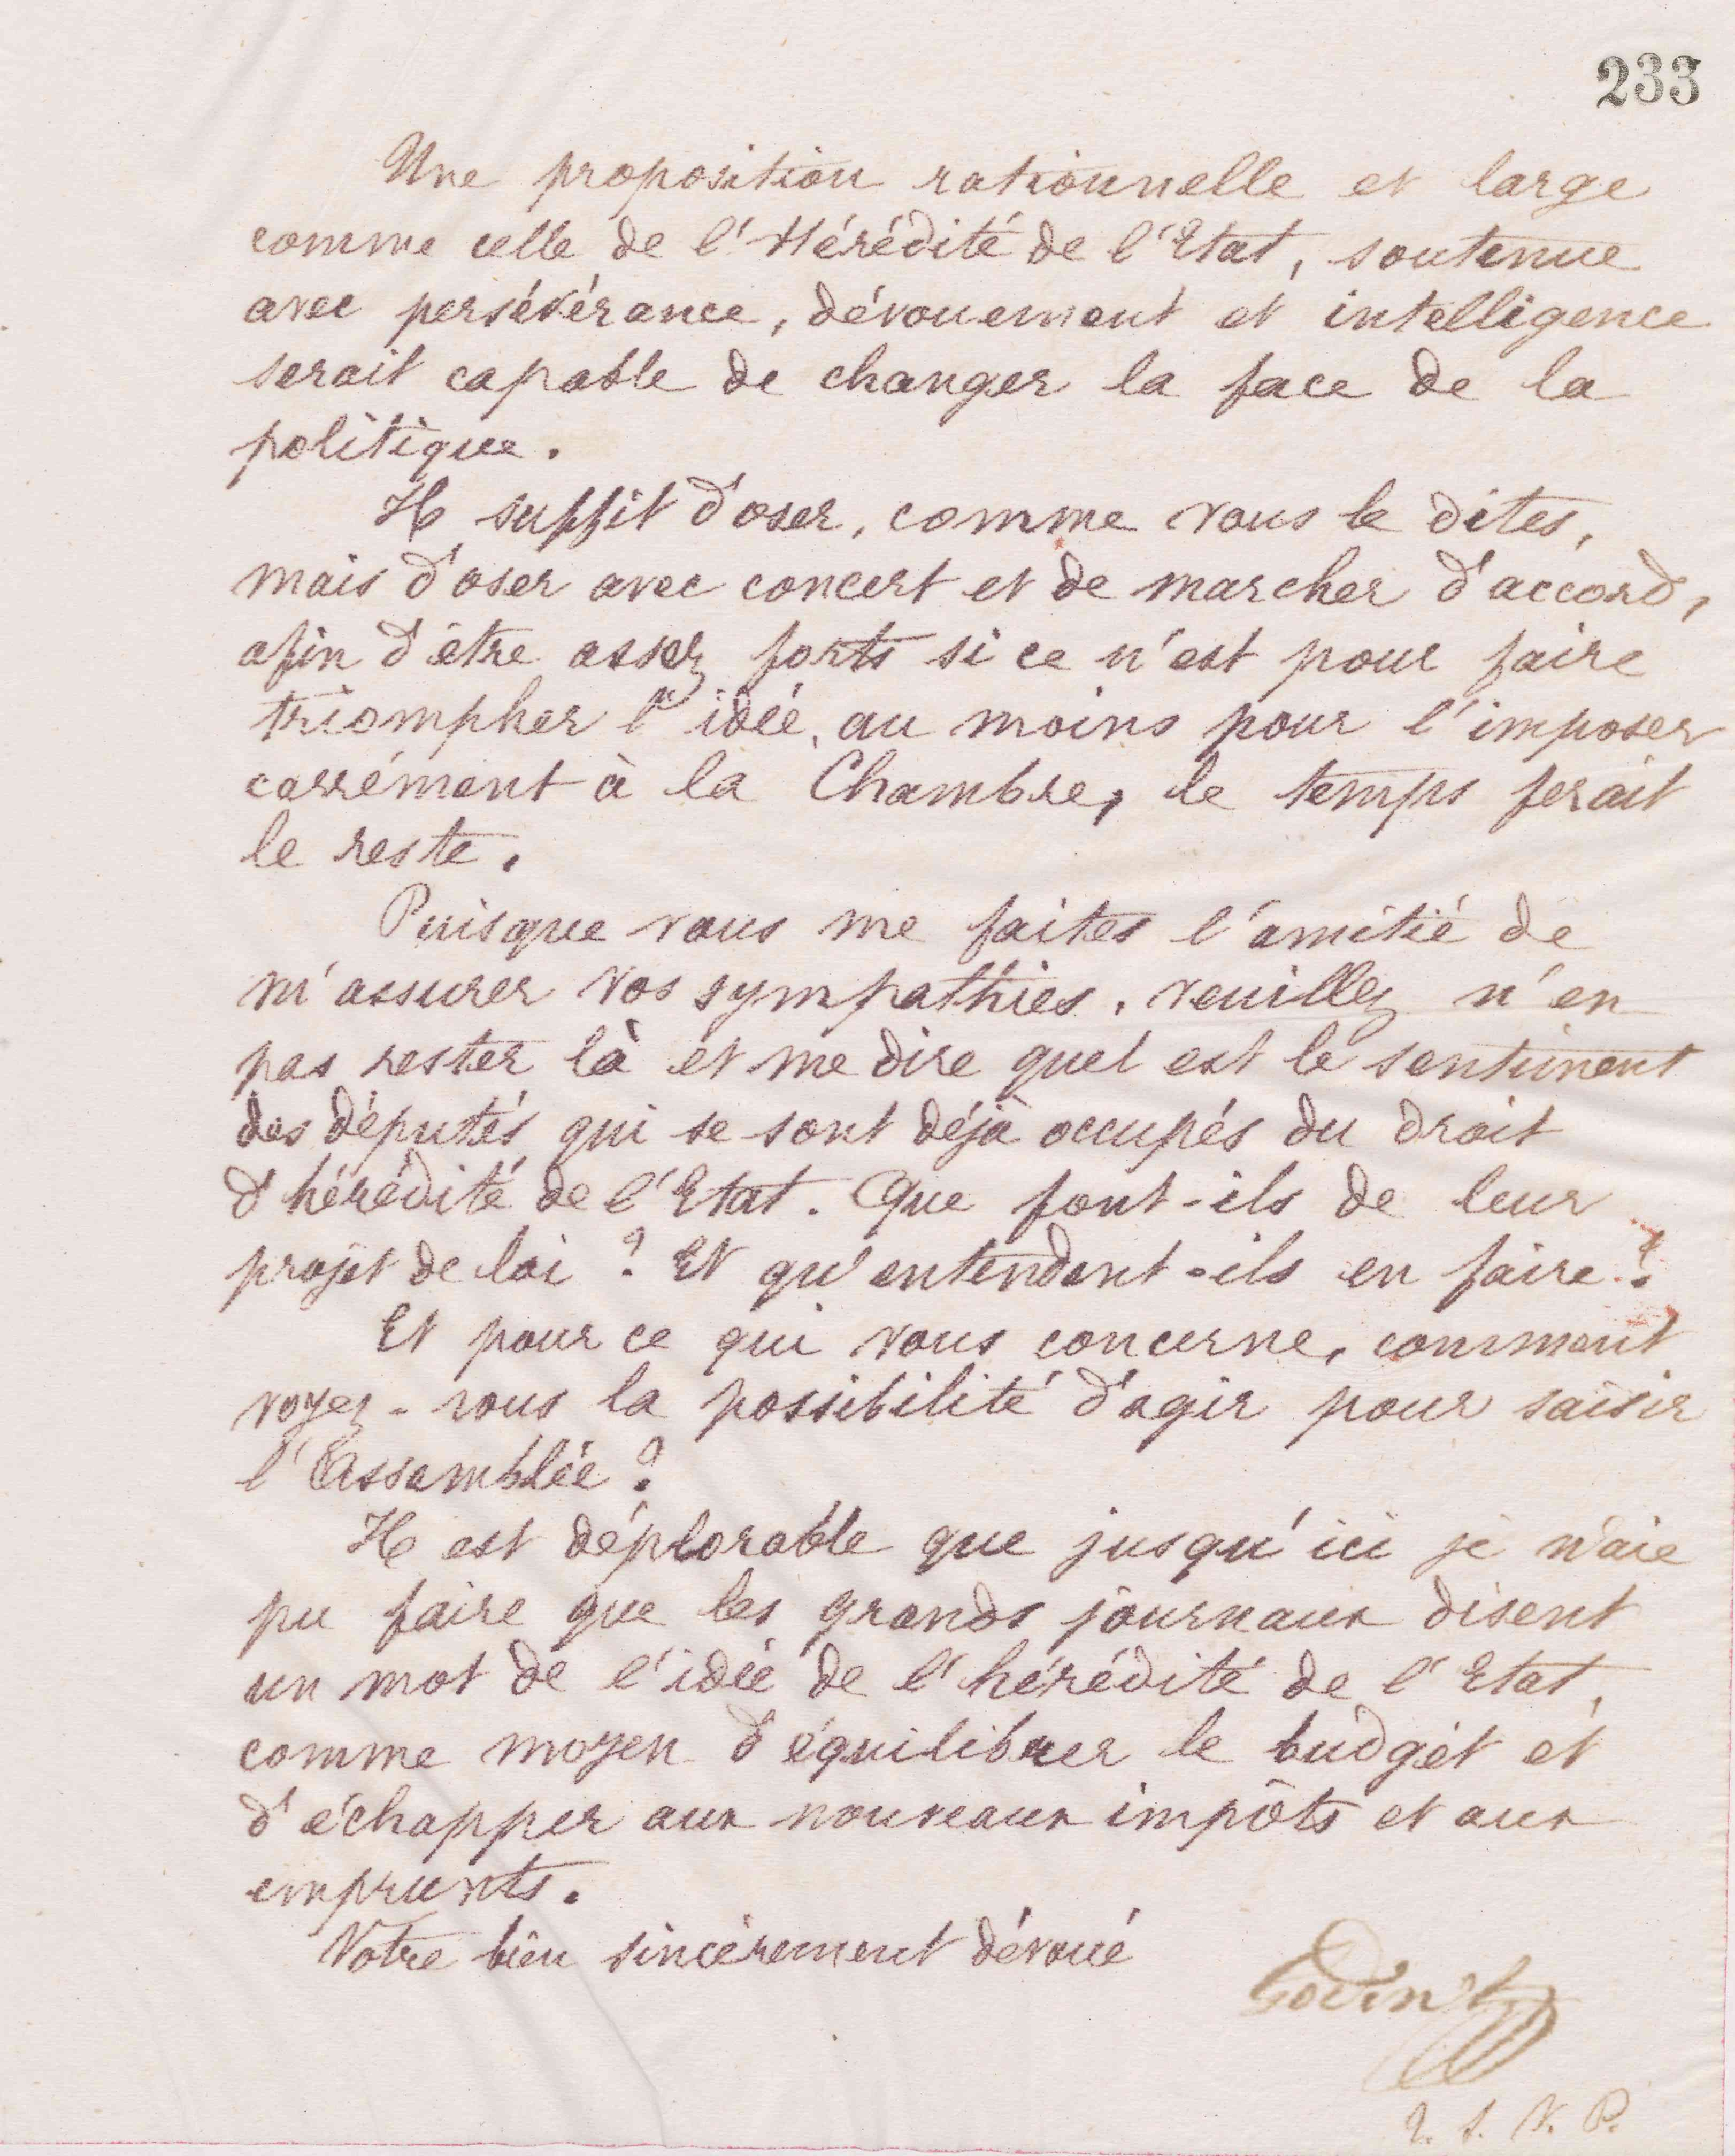 233
Une proposition rationnelle et large
comme celle de l'Hérédité de l'Etat, soutenue
avec persévérance, dévouement et intelligence
serait capable de changer la face de la
politique.
Il suffit d'oser, comme vous le dites,
mais d'oser avec concert et de marcher d'accord,
afin d'être assez forts si ce n'est pour faire
triompher l'idée, au moins pour l'imposer
carrément à la Chambre, le temps ferait
le reste.
Puisque vous me faites l'amitié de
m'assurer vos sympathies, veuillez n'en
pas rester là et me dire quel est le sentiment
des députés qui se sont déjà occupés du droit
d'hérédité de l'Etat. Que font-ils de leur
projet de loi ? Et qu'entendent-ils en faire ?
Et pour ce qui vous concerne, comment
voyez-vous la possibilité d'agir pour saisir
l'Assemblée ?
Il est déplorable que jusqu'ici je n'aie
pu faire que les grands journaux disent
un mot de l'idée de l'hérédité de l'Etat,
comme moyen d'équilibrer le budget et
d'échapper aux nouveaux impôts et aux
emprunts.
Votre bien sincèrement dévoué
Godin
T. S. V. P.